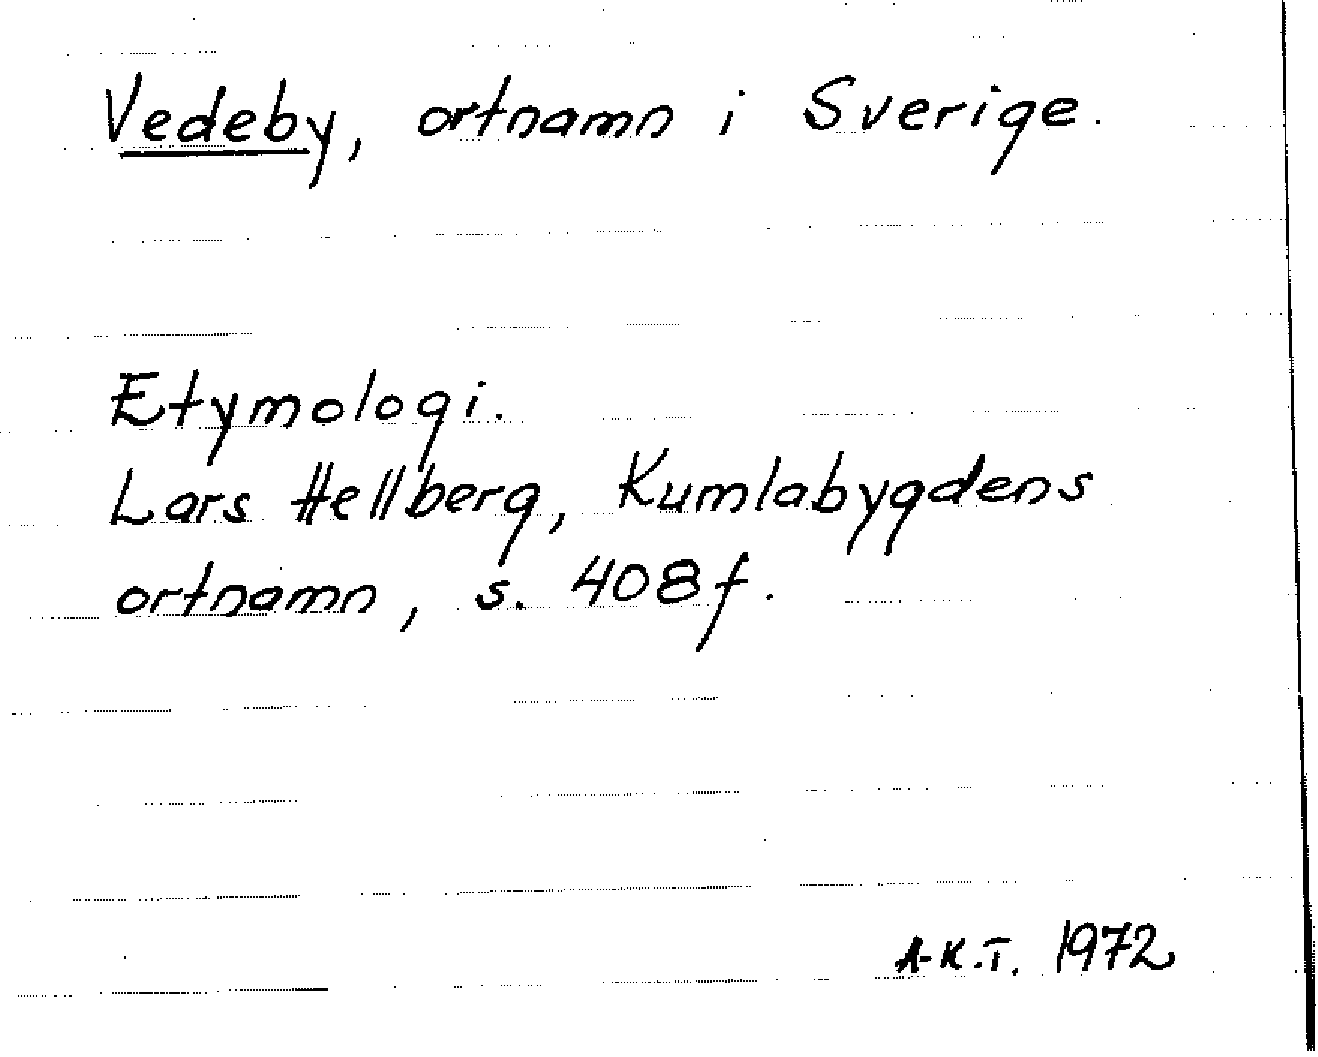 Vedeby, ortnamn i Sverige.
Etymologi.
Lars Hellberg, Kumlabygdens
ortnamn, s. 408f.
A-K.T. 1972